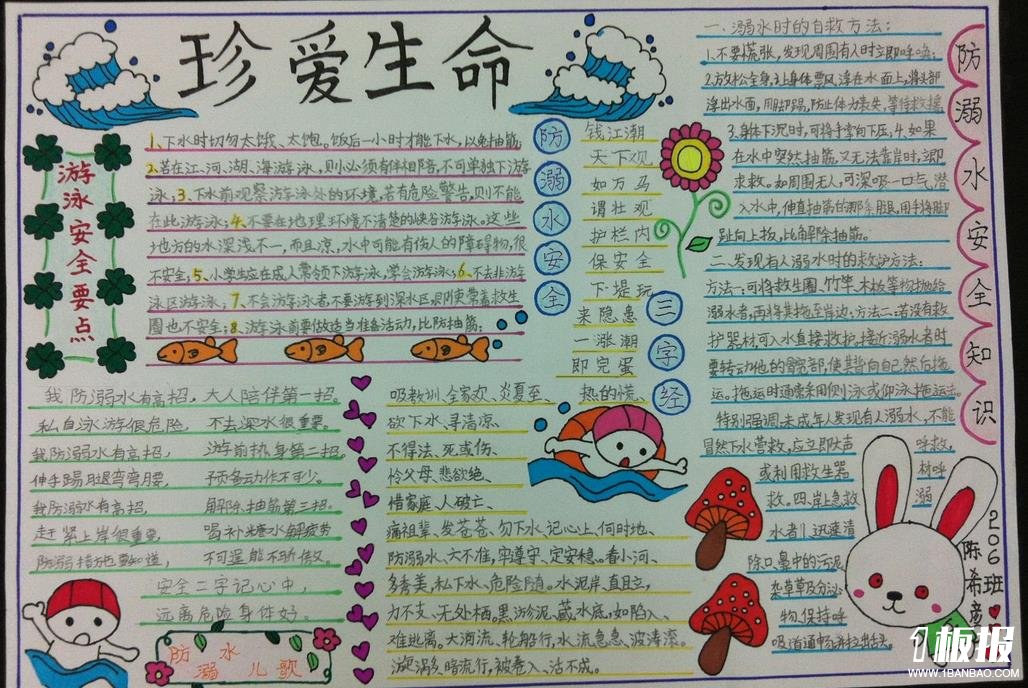 珍爱生命
游泳安全要点
1、下水时切勿太饿、太饱。饭后一小时才能下水，以免抽筋；
2、若在江、河、湖、海游泳，则必须有伴相陪，不可单独下游
泳；3、下水前观察游泳处的环境，若有危险警告，则不能
在此游泳；4、不要在地理环境不清楚的峡谷游泳。这些
地方的水深浅不一，而且凉，水中可能有伤人的障碍物，很
不安全；5、小学生应在成人带领下游泳，学会游泳；6、不去非游
泳区游泳，7、不会游泳者不要游到深水区，即使带着救生
圈也不安全；8、游泳前要做适当准备活动，比防抽筋；
防溺水安全
三字经
钱江潮
天下观
如万马
谓壮观
护栏内
保安全
下堤玩
来隐患
一涨潮
即完蛋
热的慌、
吸教训、全家欢、炎夏至、
欲下水、寻清凉、
不得法、死或伤、
怜父母、悲欲绝、
惜家庭、人破亡、
痛祖辈、发苍苍、勿下水、记心上、何时地、
防溺水、六不准，牢遵守、定安稳。看小河、
多秀美，私下水、危险随。水泥岸，直且立，
力不支、无处栖，黑淤泥、藏水底，如陷入、
难逃离。大海流、轮船行，水流急、波涛滚。
游漩涡、暗流行，被卷入、活不成。
我防溺水有高招，大人陪伴第一招。
私自泳游很危险，不去深水很重要。
我防溺水有高招，游前热身第二招。
伸手踢腿弯弯腰，预备动作不可少。
我防溺水有高招，解除抽筋第三招。
赶紧上岸很重要，喝补糖水解疲劳
防溺措施要知道，不可逞能不骄傲。
安全二字记心中，
远离危险身体好。
防溺水儿歌
防溺水安全知识
一、溺水时的自救方法：
1、不要慌张，发现周围有人时立即呼唤；
2、放松全身，让身体飘浮在水面上，将头部
浮出水面，用脚踢，防止体力丧失，等待救援
3、身体下沉时，可将手掌向下压；4、如果
在水中突然抽筋，又无法靠岸时，立即
求救。如周围无人，可深吸一口气潜
入水中，伸直抽筋的那条腿，用手将脚
趾向上扳，比解除抽筋。
二、发现有人溺水时的救护方法：
方法一：可将救生圈、竹竿、木板等物抛给
溺水者，再将其拖至岸边；方法二：若没有救
护器材，可入水直接救护，接近溺水者时
要转动他的髋部，使其背向自己，然后拖
运。拖运时通常采用侧泳或仰泳拖运法。
特别强调：未成年人发现有人溺水，不能
冒然下水营救，应立即大声呼救，
或利用救生器材呼
救。四、岸上急救溺
水者1、迅速清
除口鼻中的污泥
杂草及分泌
物，保持呼
吸道通畅，并拉出舌头。
206班
陈希
板报
WWW.1BANBAO.COM